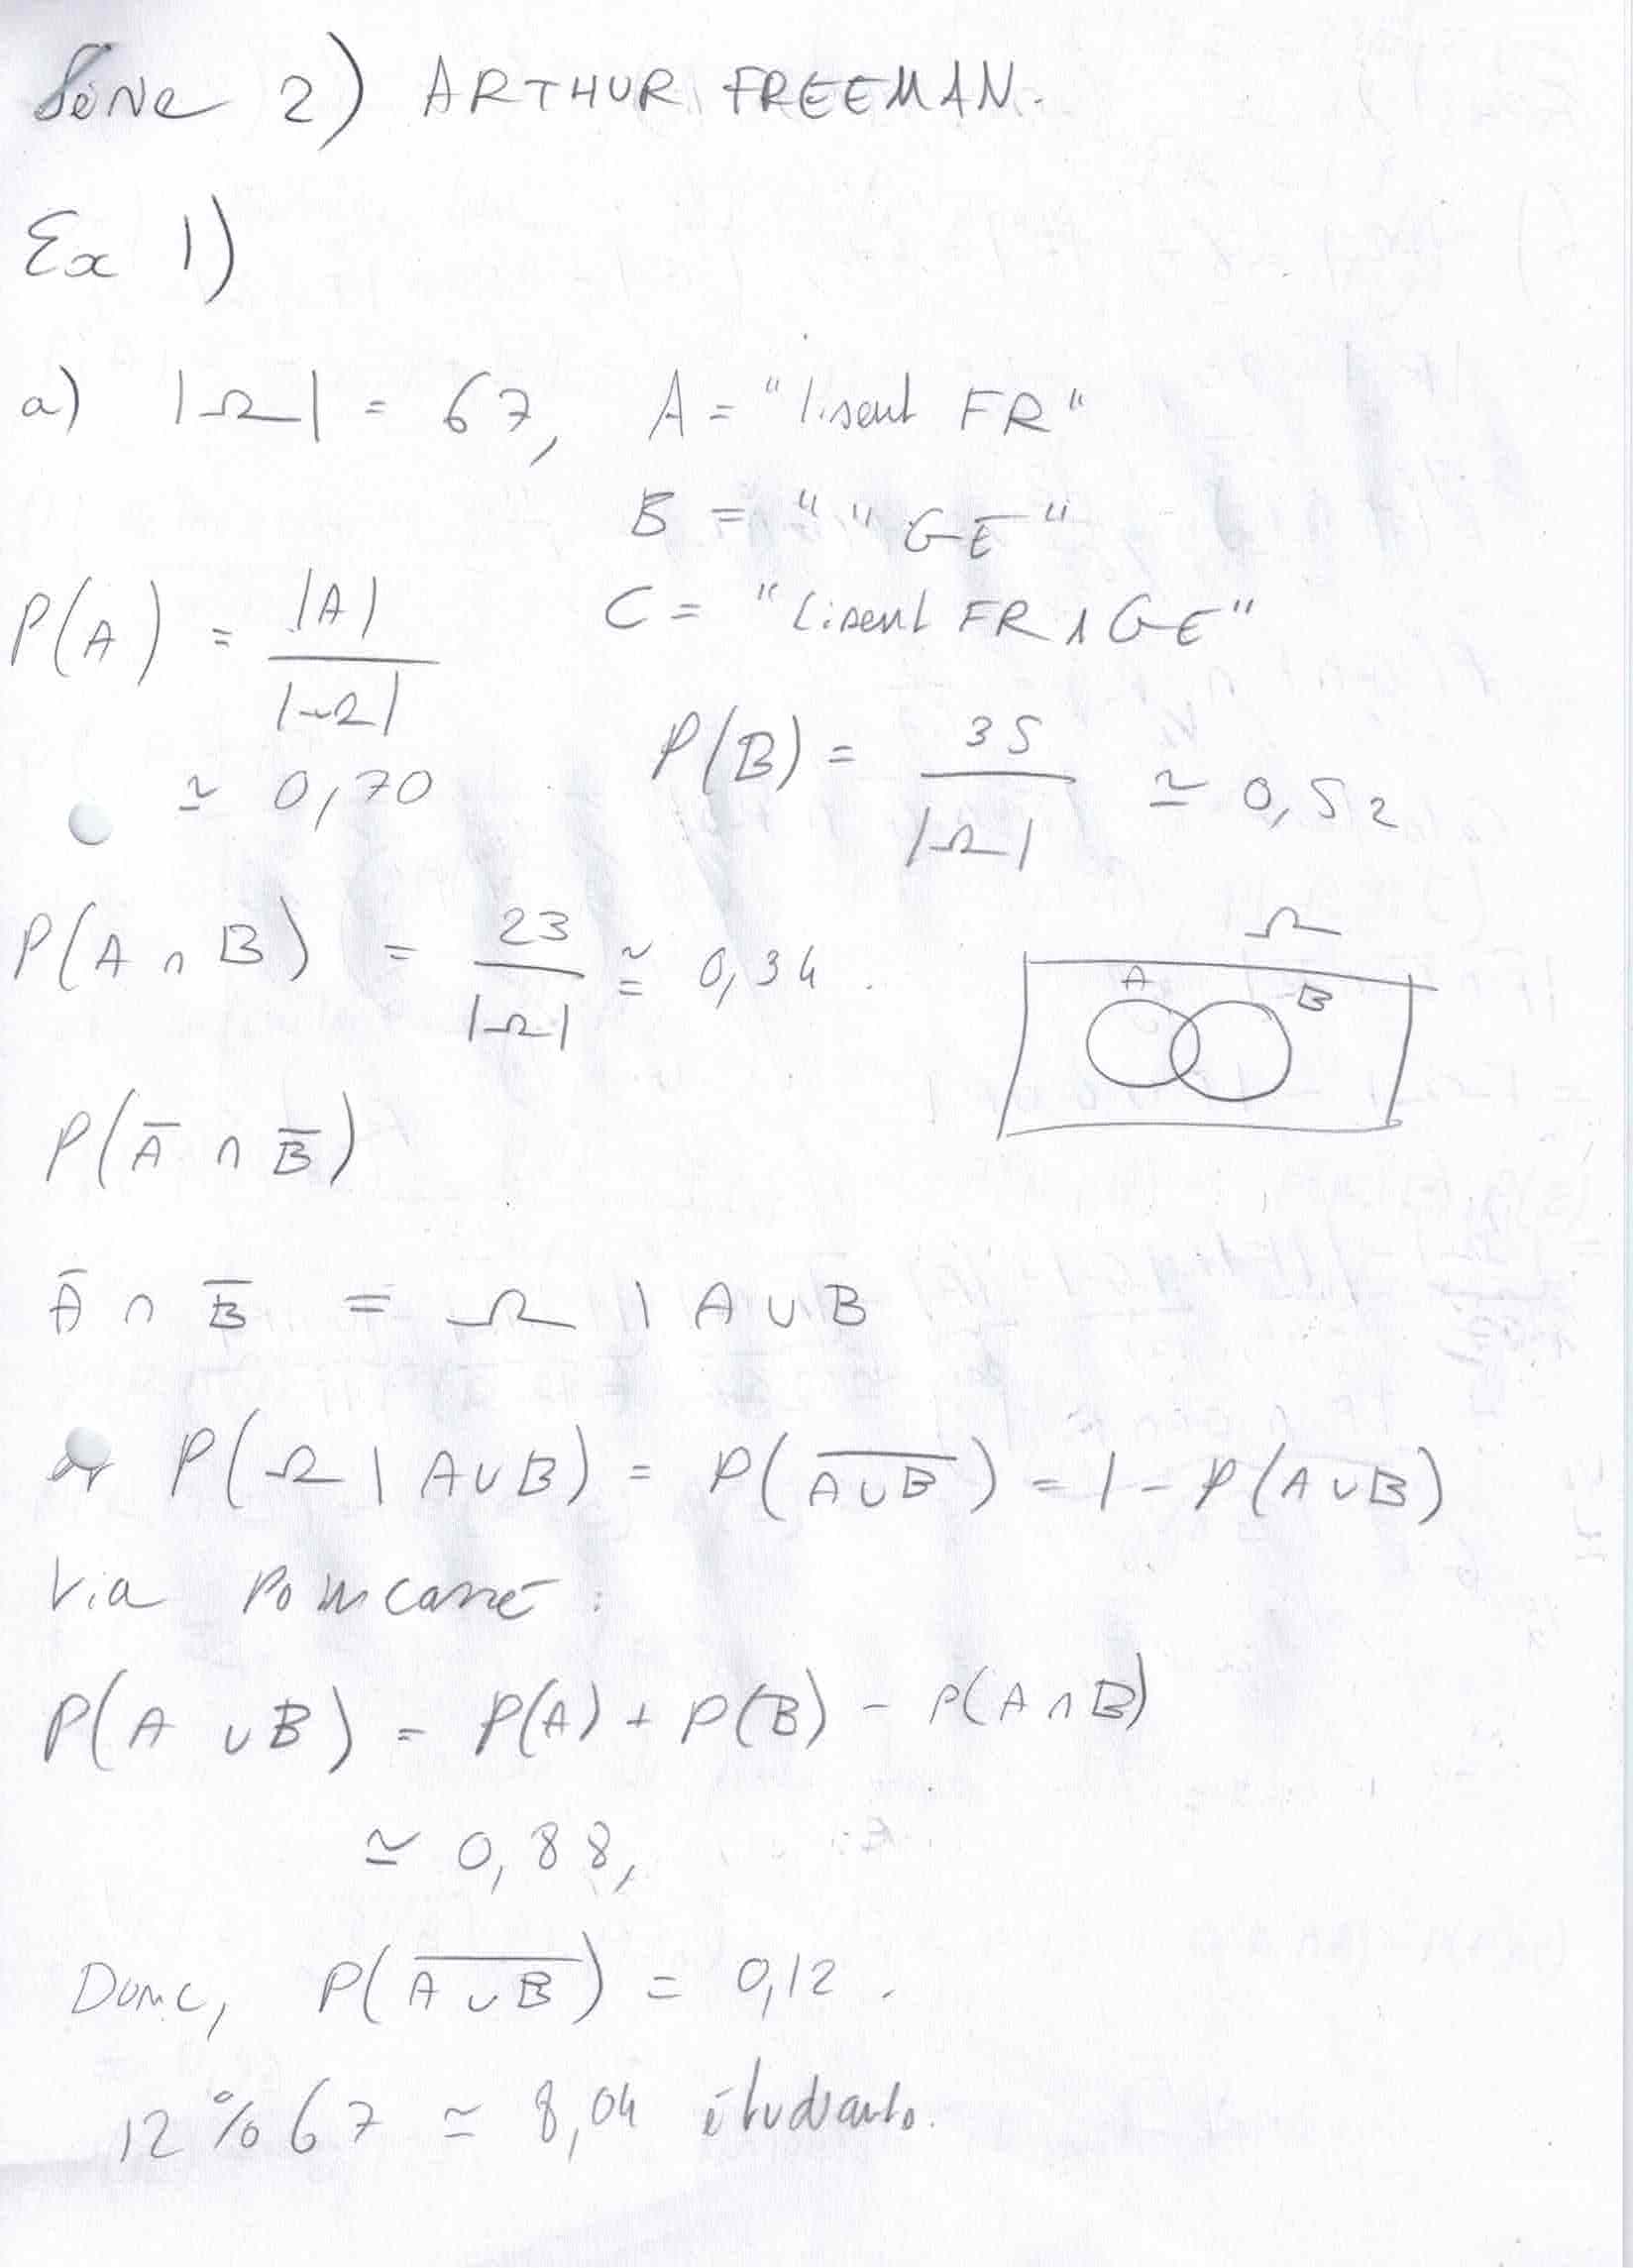 Série 2) ARTHUR FREEMAN.
Ex 1)
a) |Ω| = 67, A = "lisent FR"
B = " " GE"
C = "Lisent FR ∧ GE"
P(A) = |A| / |Ω|
≃ 0,70
P(B) = 35 / |Ω| ≃ 0,52
P(A ∩ B) = 23 / |Ω| ≅ 0,34.
Ω
A
B
P(Ā ∩ B̄)
Ā ∩ B̄ = Ω \ A ∪ B
or P(Ω \ A∪B) = P(\overline{A∪B}) = 1 - P(A∪B)
Via Poincarré :
P(A ∪ B) = P(A) + P(B) - P(A ∩ B)
≃ 0,88,
Donc, P(\overline{A ∪ B}) = 0,12.
12 % 67 ≃ 8,04 étudiants.